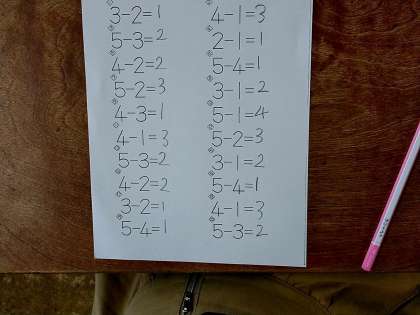 3-2=1
5-3=2
4-2=2
5-2=3
4-3=1
4-1=3
5-3=2
4-2=2
3-2=1
5-4=1
4-1=3
2-1=1
5-4=1
3-1=2
5-1=4
5-2=3
3-1=2
5-4=1
4-1=3
5-3=2